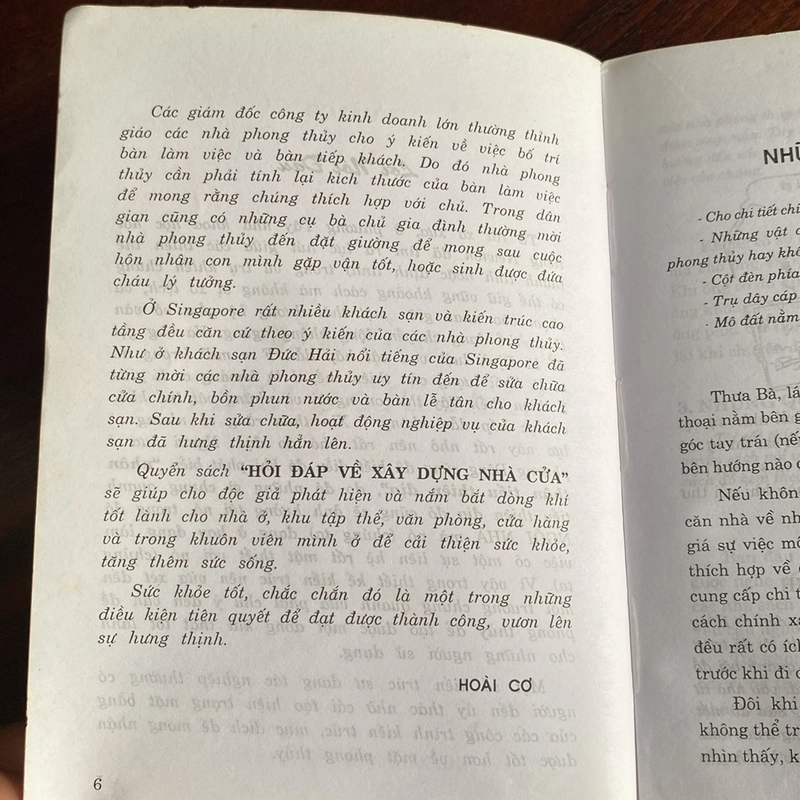 Các giám đốc công ty kinh doanh lớn thường thỉnh
giáo các nhà phong thủy cho ý kiến về việc bố trí
bàn làm việc và bàn tiếp khách. Do đó nhà phong
thủy cần phải tính lại kích thước của bàn làm việc
để mong rằng chúng thích hợp với chủ. Trong dân
gian cũng có những cụ bà chủ gia đình thường mời
nhà phong thủy đến đặt giường để mong sau cuộc
hôn nhân con mình gặp vận tốt, hoặc sinh được đứa
cháu lý tưởng.
Ở Singapore rất nhiều khách sạn và kiến trúc cao
tầng đều căn cứ theo ý kiến của các nhà phong thủy.
Như ở khách sạn Đức Hải nổi tiếng của Singapore đã
từng mời các nhà phong thủy uy tín đến để sửa chữa
cửa chính, bồn phun nước và bàn lễ tân cho khách
sạn. Sau khi sửa chữa, hoạt động nghiệp vụ của khách
sạn đã hưng thịnh hẳn lên.
Quyển sách "HỎI ĐÁP VỀ XÂY DỰNG NHÀ CỬA"
sẽ giúp cho độc giả phát hiện và nắm bắt dòng khí
tốt lành cho nhà ở, khu tập thể, văn phòng, cửa hàng
và trong khuôn viên mình ở để cải thiện sức khỏe,
tăng thêm sức sống.
Sức khỏe tốt, chắc chắn đó là một trong những
điều kiện tiên quyết để đạt được thành công, vươn lên
sự hưng thịnh.
HOÀI CƠ
6
- Cho chi tiết
- Những vật
phong thủy hay
- Cột đèn phía
- Trụ dây cáp
- Mô đất nằm
Thưa Bà,
thoại nằm bên
góc tay trái
bên hướng nào
Nếu không
căn nhà về
giá sự việc
thích hợp về
cung cấp chi
cách chính
đều rất có ích
trước khi đi
Đôi khi
không thể
nhìn thấy,